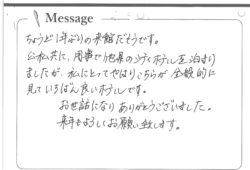 Message
ちょうど1年ぶりの来館だそうです。
公私共に、用事で他県のシティホテルを泊まり
ましたが、私にとってやはりこちらが全般的に
見ていちばん良いホテルです。
お世話になりありがとうございました。
来年もよろしくお願い致します。